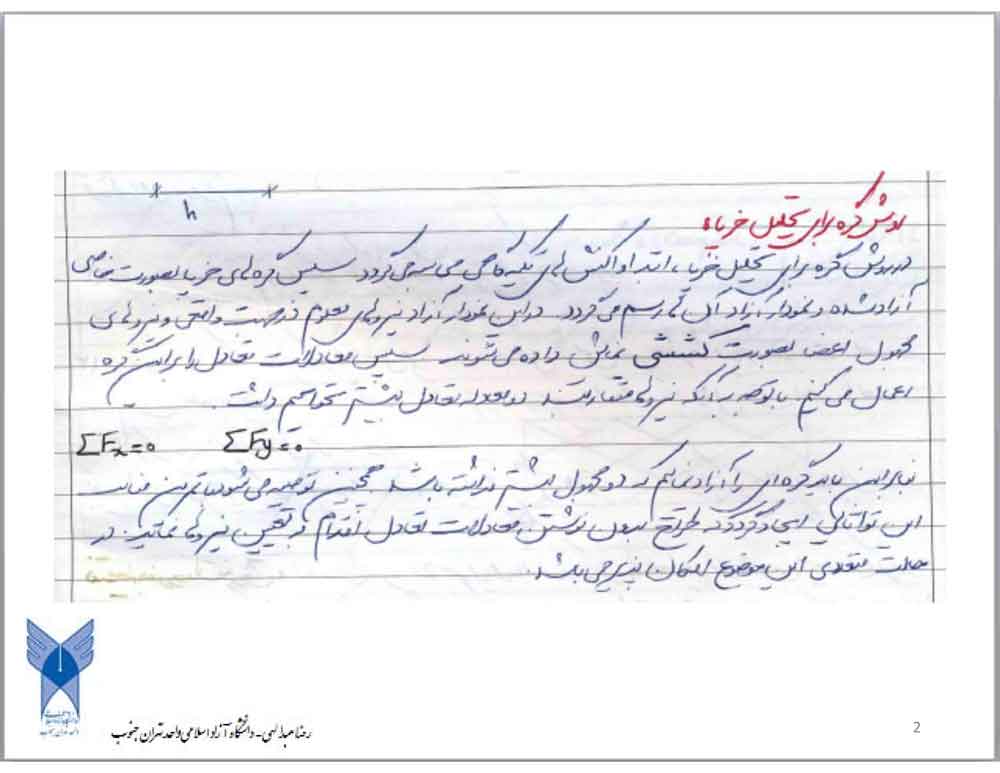 h
روش گره برای تحلیل خرپاها
در روش گره برای تحلیل خرپا، ابتدا واکنش های تکیه گاهی محاسبه می گردد سپس گره های خرپا بصورت خاصی
آزاد شده و نمودار آزاد آن ها رسم می گردد. در این نمودار آزاد نیروهای معلوم در جهت واقعی و نیروهای
مجهول اعضا بصورت کششی نمایش داده می شوند. سپس معادلات تعادل را برای گره
اعمال می کنیم. با توجه به آنکه نیروها متقاربند دو معادله تعادل بیشتر نخواهیم داشت.
ΣFx=0 ΣFy=0
بنابراین باید گره ای را آزاد نمائیم که دو مجهول بیشتر نداشته باشد. همچنین توصیه می شود با تمرین مناسب
این توانائی ایجاد گردد که طراح بدون نوشتن معادلات تعادل اقدام به تعیین نیروها نماید. در
حالت متعددی این موضوع امکان پذیر می باشد.
رضا عبدالهی - دانشگاه آزاد اسلامی واحد تهران جنوب
2